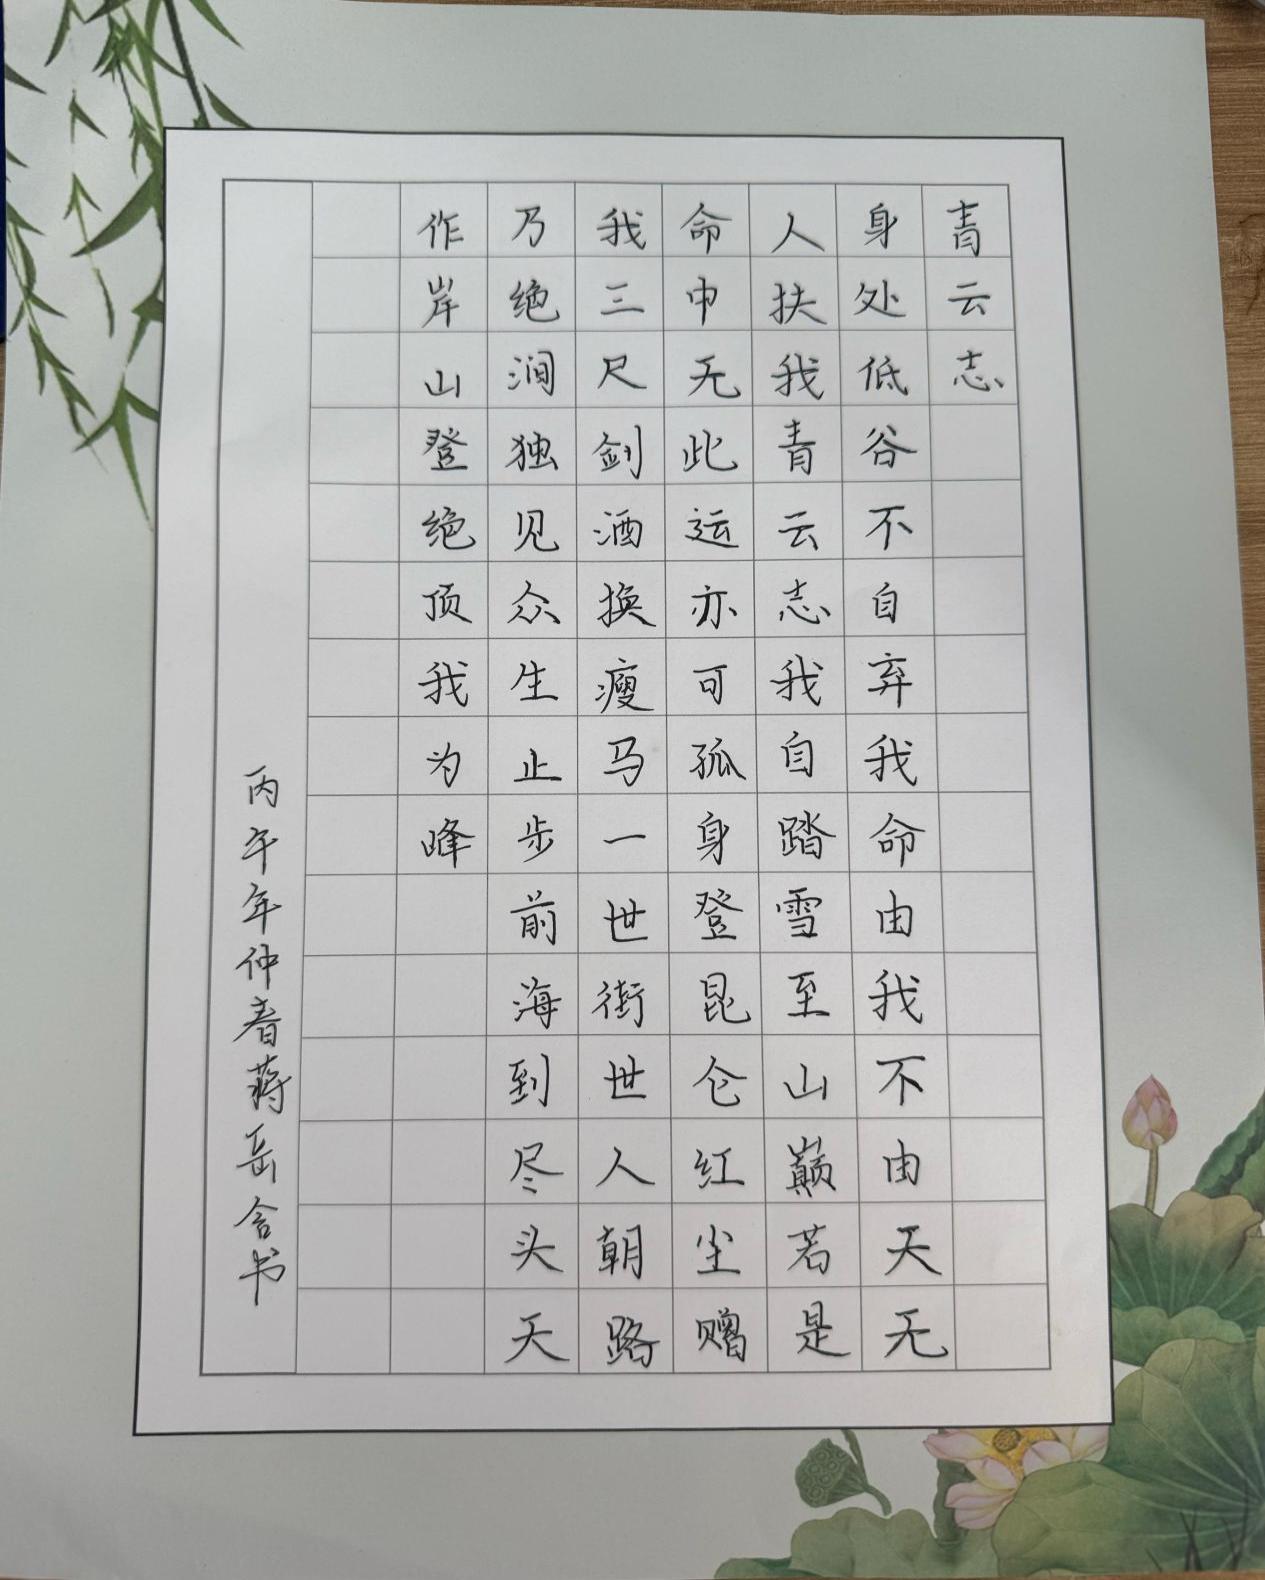 青云志
身处低谷不自弃我命由我不由天无
人扶我青云志我自踏雪至山巅若是
命中无此运亦可孤身登昆仑红尘赠
我三尺剑酒换瘦马一世街世人朝路
乃绝涧独见众生止步前海到尽头天
作岸山登绝顶我为峰
丙午年仲春蒋岳含书